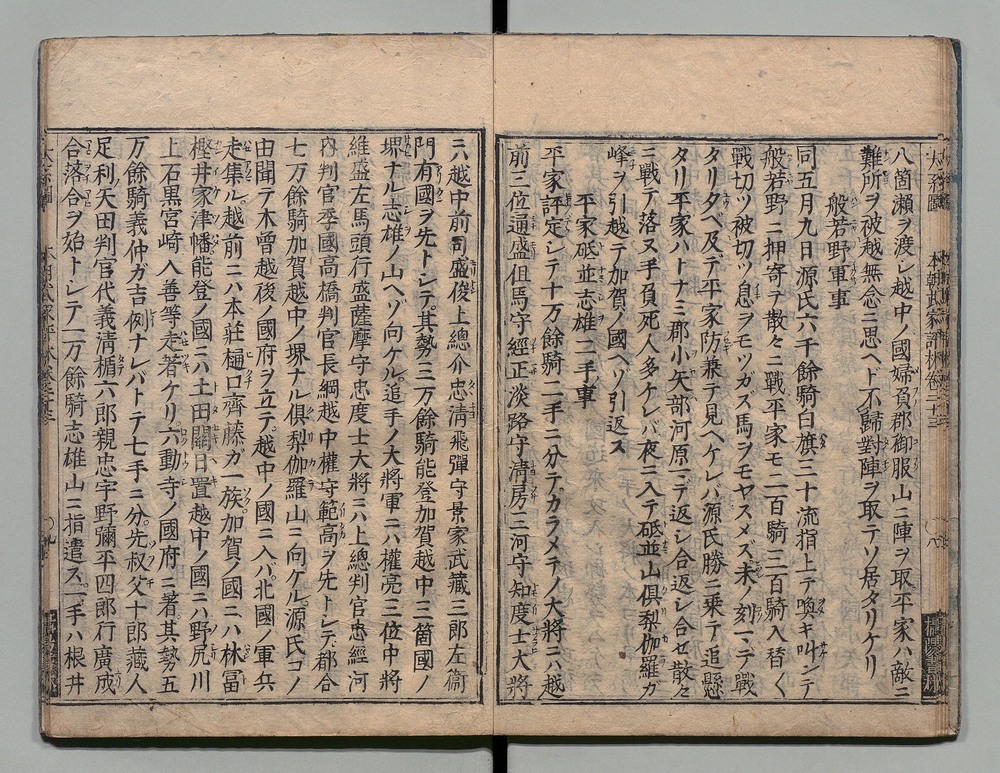 八箇瀬ヲ渡シ越中ノ國婦負郡御服山ニ陣ヲ取平家ハ敵ニ
難所ヲ被越無念ニ思ヘド不歸對陣ヲ取テソ居タリケリ
般若野軍事
同五月九日源氏六千餘騎白旗三十流指上テ喚キ叫ンテ
般若野ニ押寄テ散々ニ戰平家モ二百騎三百騎入替く
戰切ツ被切ツ息ヲモツガズ馬ヲモヤスメズ未ノ刻マデ戰
タリタベ及テ平家防兼テ見ヘケレバ源氏勝ニ乗テ追懸
タリ平家ハトナミ郡小矢部河原ニデ返シ合返シ合セ散々
ニ戰テ落ヌ手負死人多ケレバ夜ニ入テ砥並山俱梨伽羅ガ
峰ヲ引越テ加賀ノ國ヘゾ引返ス
平家砥並志雄二手事
平家評定シテ十万餘騎ニ手ニ分テカラメテノ大將ニハ越
前三位通盛但馬守經正淡路守清房三河守知度士大將
ニハ越中前司盛俊上總介忠清飛彈守景家武藏三郎左衞
門有國ヲ先トシテ其勢三万餘騎能登加賀越中三箇國ノ
堺ナル志雄ノ山ヘゾ向ケル追手ノ大將軍ニハ權亮三位中將
維盛左馬頭行盛薩摩守忠度士大將ニハ上總判官忠經河
内判官季國高橋判官長綱越中權守範高ヲ先トシテ都合
七万餘騎加賀越中ノ堺ナル俱梨伽羅山ニ向ケル源氏コノ
由聞テ木曾越後ノ國府ヲ立テ越中ノ國ニ入バ北國ノ軍兵
走集ル越前ニハ本莊樋口齊藤ガ一族加賀ノ國ニハ林冨
樫井家津幡能登ノ國ニハ土田關日置越中ノ國ニハ野尻川
上石黒宮崎入善等走著ケリ六動寺ノ國府ニ著其勢五
万餘騎義仲ガ吉例ナレバトテ七手ニ分先叔父十郎藏人
足利矢田判官代義清楯六郎親忠宇野彌平四郎行廣成
合落合ヲ始トシテ一万餘騎志雄山ニ指遣ス一手ハ根井